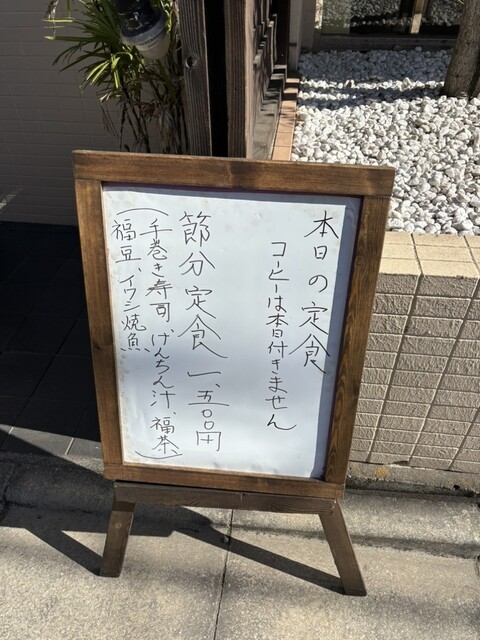 本日の定食
コーヒーは本日付きません
節分定食 一、五〇〇円
(手巻き寿司 げんちん汁、福茶、
福豆、イワシ焼魚)